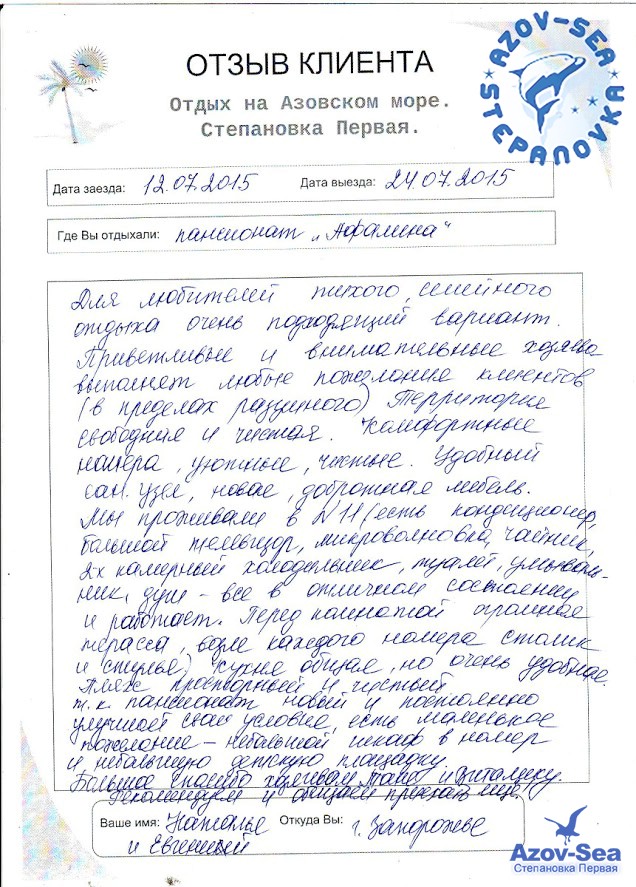 AZOV-SEA
STEPANOVKA
ОТЗЫВ КЛИЕНТА
Отдых на Азовском море.
Степановка Первая.
Дата заезда: 12.07.2015 Дата выезда: 24.07.2015
Где Вы отдыхали: пансионат „Афалина"
Для любителей тихого, семейного
отдыха очень подходящий вариант.
Приветливые и внимательные хозяева
выполнят любые пожелание клиентов
(в пределах разумного) Территория
свободная и чистая. Комфортные
номера, уютные, чистые. Удобный
сан. узел, новая, добротная мебель.
Мы проживали в N 11 (есть кондиционер,
большой телевизор, микроволновка, чайник,
2-х камерный холодильник, туалет, умываль-
ник, душ - все в отличном состоянии
и работает. Перед комнатой огромная
терасса, возле каждого номера столик
и стулья) Кухня общая, но очень удобная.
Пляж просторный и чистый
т.к пансионат новый и постоянно
улучшает свои условия, есть маленькое
пожелание - небольшой шкаф в номер
и небольшую детскую площадку.
Большое спасибо хозяевам Тане и Виталику.
Рекомендуем и обещаем приехать еще.
Ваше имя: Наталья Откуда Вы: г. Запорожье
и Евгений
Azov-Sea
Степановка Первая